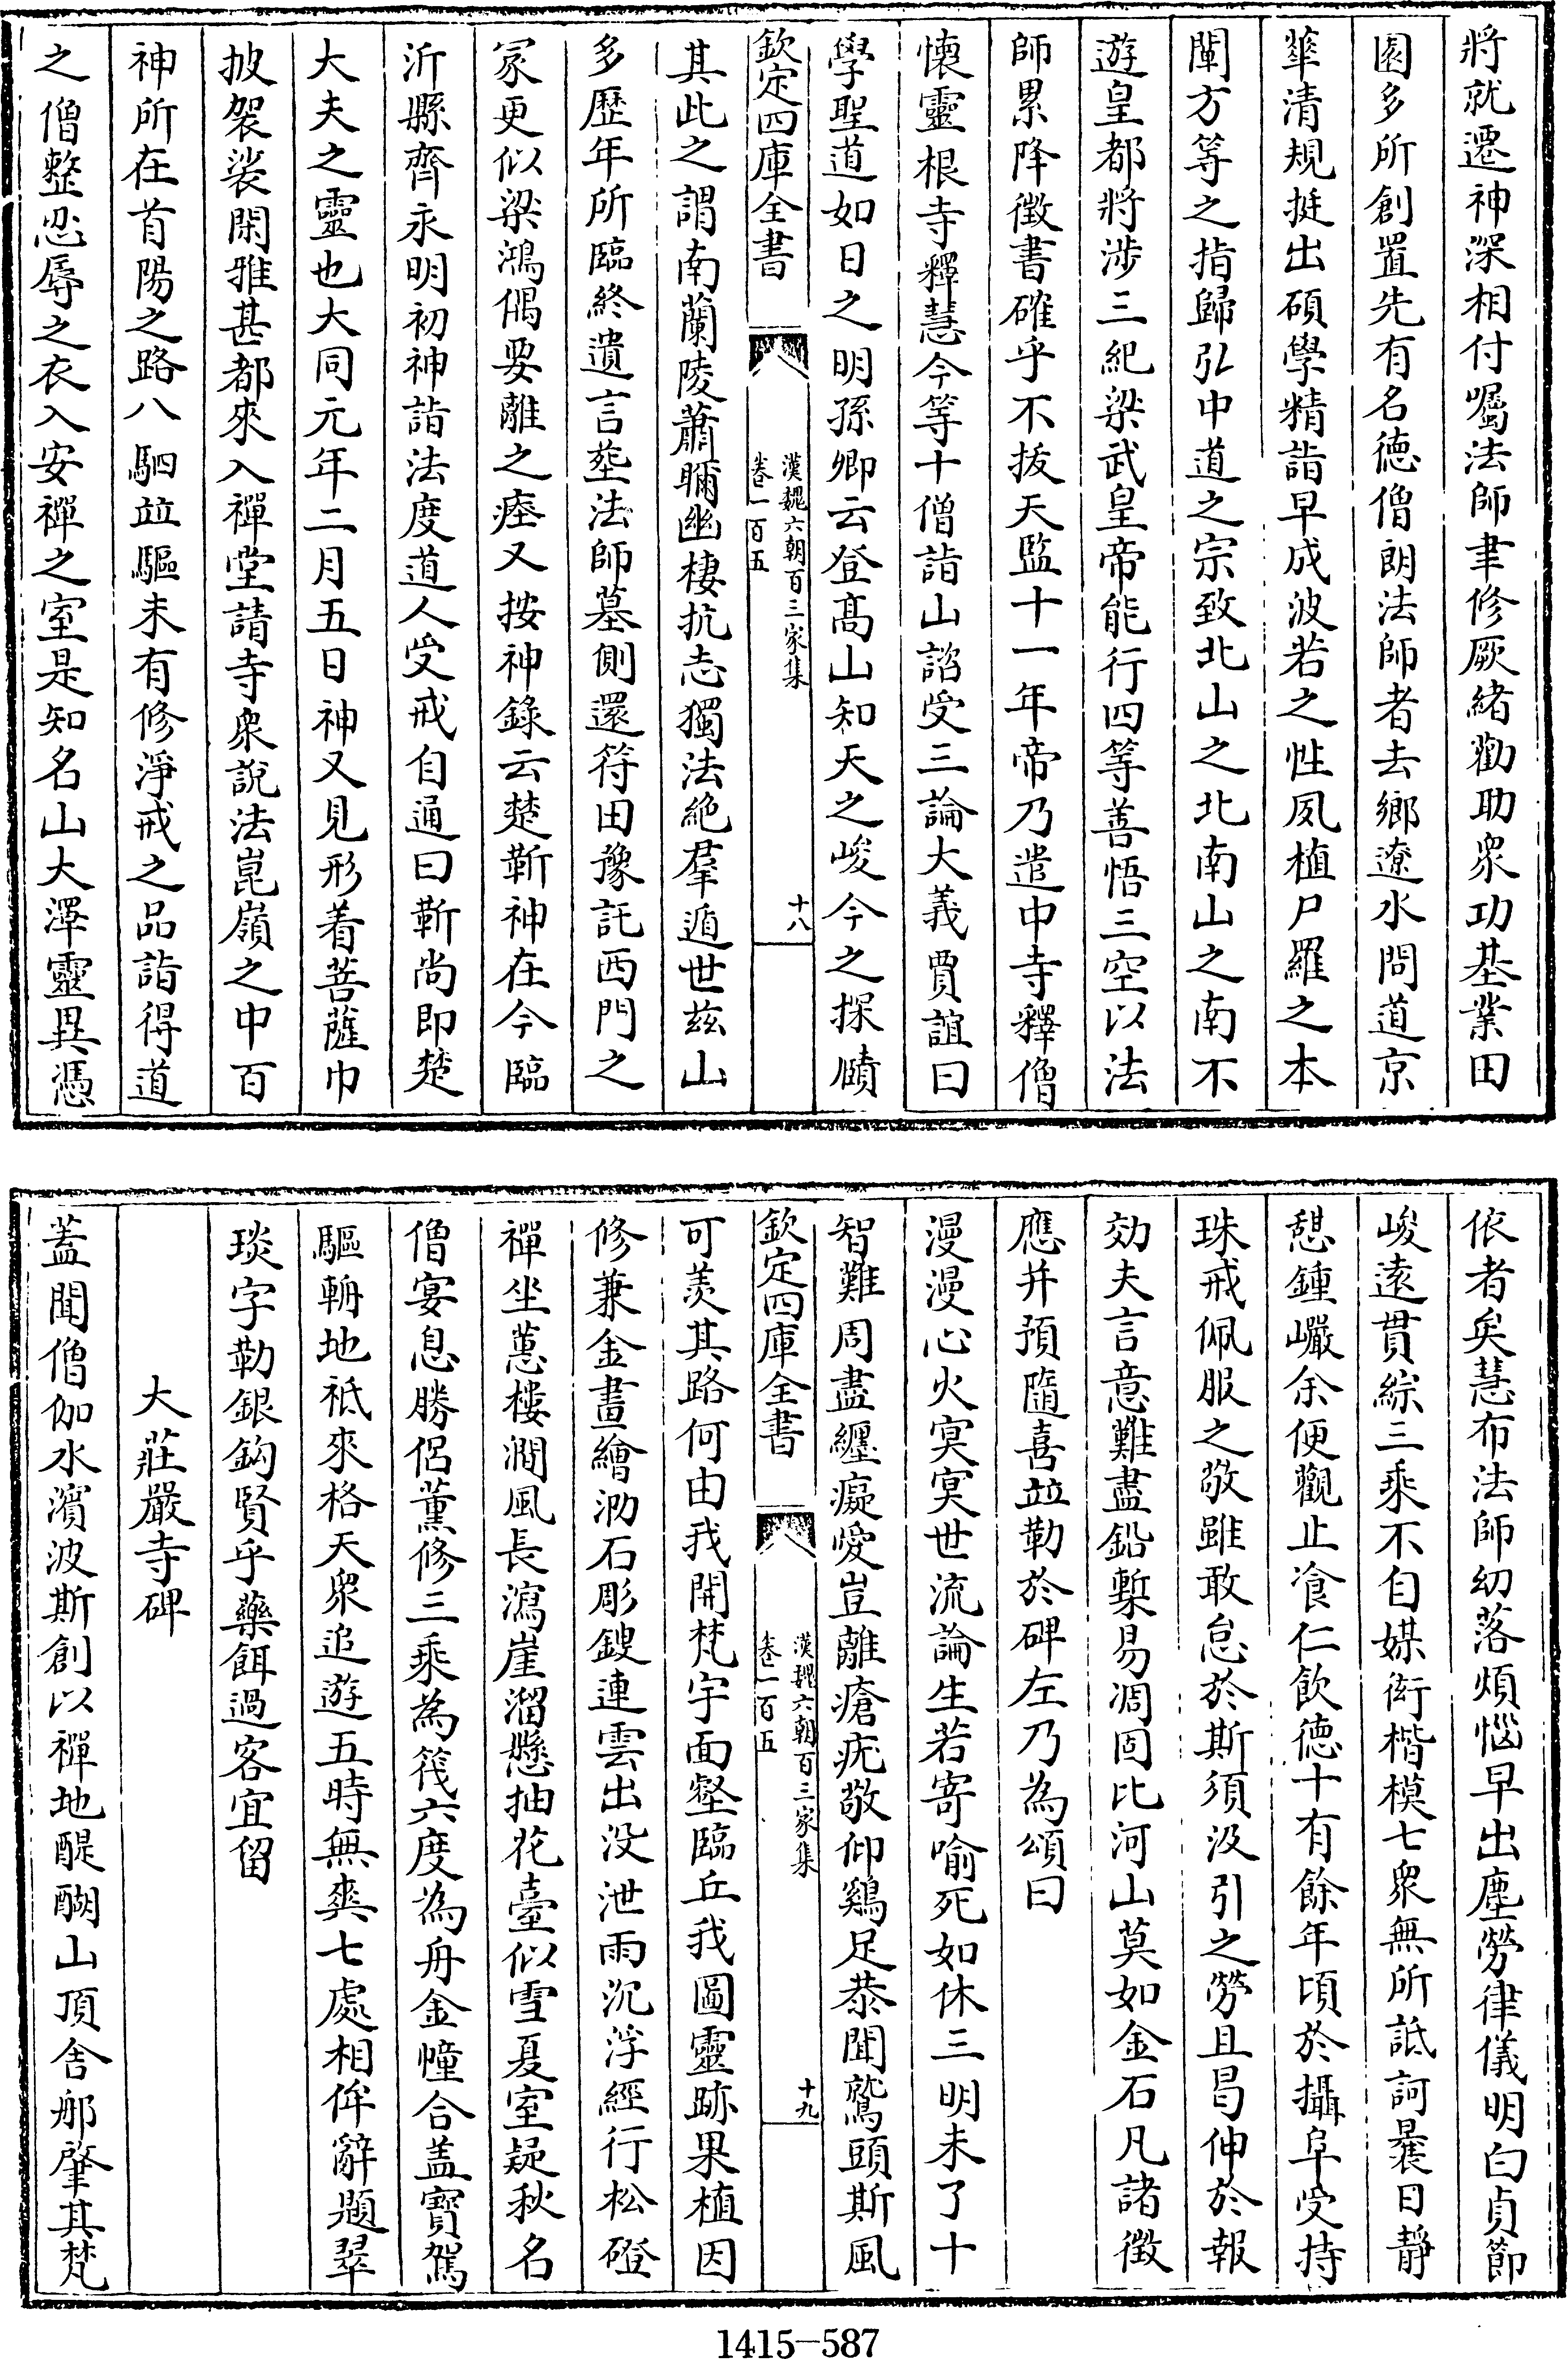 將就遷神深相付囑法師聿修厥緒勸助衆功基業田
園多所創置先有名德僧朗法師者去鄉遼水問道京
華清規挺出碩學精詣早成波若之性夙植尸羅之本
闡方等之指歸弘中道之宗致北山之北南山之南不
遊皇都將涉三紀梁武皇帝能行四等善悟三空以法
師累降徵書確乎不拔天監十一年帝乃遣中寺釋僧
懷靈根寺釋慧令等十僧詣山諮受三論大義賈誼曰
學聖道如日之明孫卿云登高山知天之峻今之探賾
欽定四庫全書
漢魏六朝百三家集
卷一百五
十八
其此之謂南蘭陵蕭眎幽棲抗志獨法絶羣遁世兹山
多歷年所臨終遺言塟法師墓側還符田豫託西門之
冢更似梁鴻偶要離之瘞又按神錄云楚靳神在今臨
沂縣齊永明初神詣法度道人受戒自通曰靳尚即楚
大夫之靈也大同元年二月五日神又見形着菩薩巾
披袈裟閑雅甚都來入禪堂請寺衆說法崑嶺之中百
神所在首陽之路八駟竝驅未有修淨戒之品詣得道
之僧整忍辱之衣入安禪之室是知名山大澤靈異憑
依者矣慧布法師幼落煩惱早出塵勞律儀明白貞節
峻遠貫綜三乘不自媒衒楷模七衆無所詆訶曩日靜
憇鍾巘余便觀止飡仁飲德十有餘年頃於攝阜受持
珠戒佩服之敬雖敢怠於斯須汲引之勞且曷伸於報
効夫言意難盡鉛槧易凋固比河山莫如金石凡諸徵
應并預隨喜竝勒於碑左乃為頌曰
漫漫心火㝠㝠世流論生若寄喻死如休三明未了十
智難周盡纒癡愛豈離瘡疣敬仰鷄足恭聞鷲頭斯風
欽定四庫全書
漢魏六朝百三家集
卷一百五
十九
可羨其路何由我開梵宇面壑臨丘我圖靈跡果植因
修兼金畫繪泐石彫鎪連雲出没泄雨沉浮經行松磴
禪坐蕙樓澗風長瀉崖溜懸抽花臺似雪夏室疑秋名
僧宴息勝侶薰修三乘為筏六度為舟金幢合蓋寶駕
驅輈地祇來格天衆追遊五時無爽七處相侔辭題翠
琰字勒銀鈎賢乎藥餌過客宜留
大莊嚴寺碑
蓋聞僧伽水濱波斯創以禪地醍醐山頂舍那肇其梵
1415-587